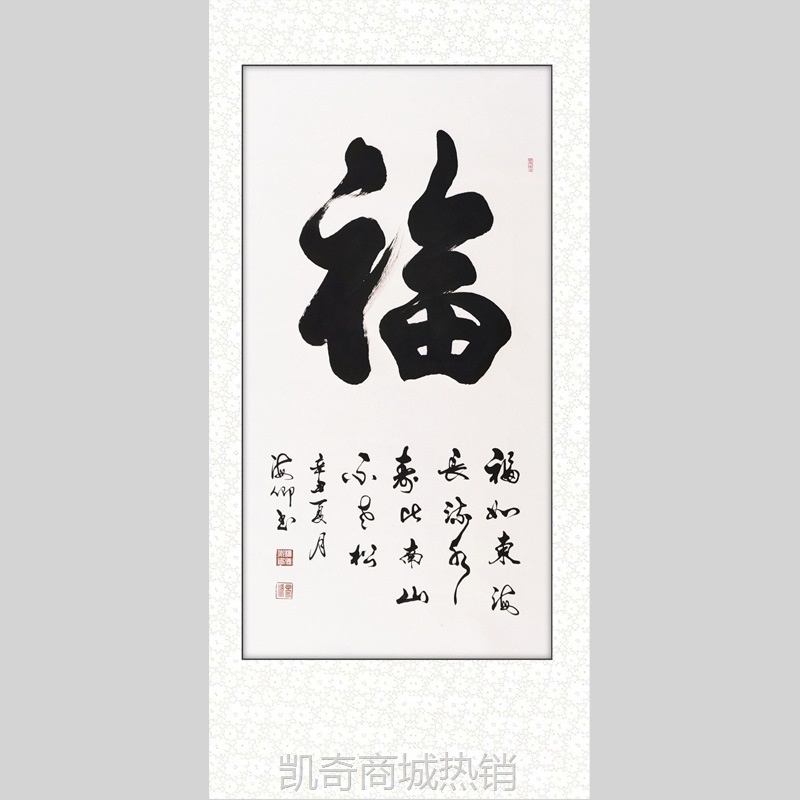 福
福如東海
長流水
壽比南山
不老松
辛丑夏月
海卿书
凯奇商城热销